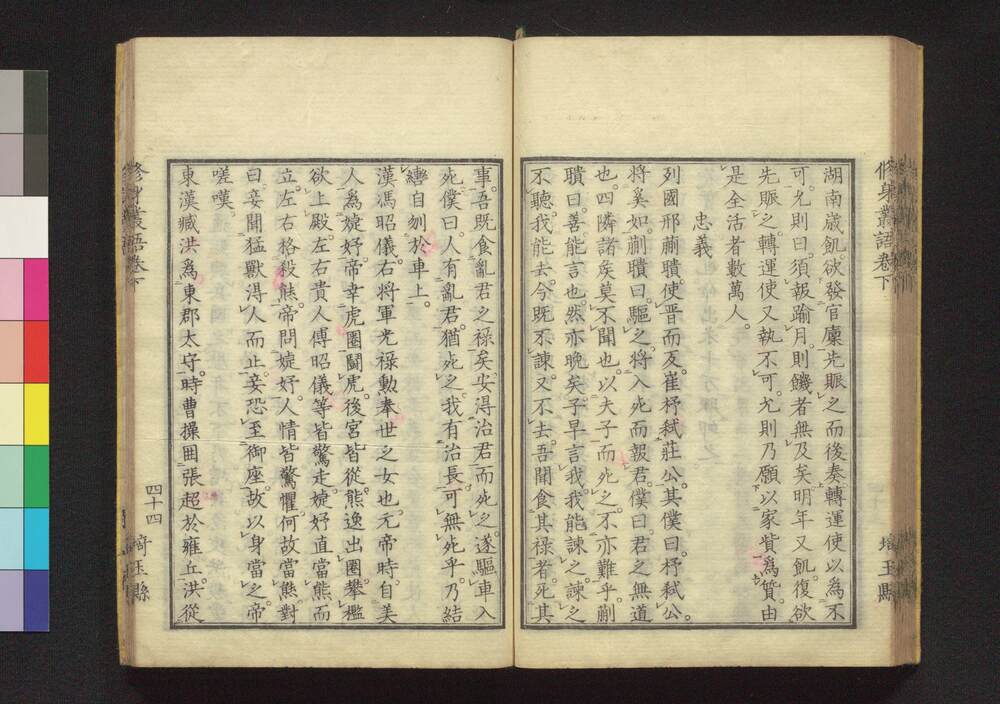 修身叢語卷下
埼玉縣
湖南歲飢。欲發官廩先賑之而後奏。轉運使以爲不
可。尤則曰。須報踰月。則饑者無及矣。明年又飢。復欲
先賑之。轉運使又執不可。尤則乃願以家貲爲質。由
是全活者數萬人。
忠義
列國邢蒯聵。使晋而反。崔杼弑莊公。其僕曰。杼弑公。
將奚如。蒯聵曰。驅之。將入死而報君。僕曰。君之無道
也。四隣諸矦莫不聞也。以夫子而死之。不亦難乎。蒯
聵曰。善能言也。然亦晚矣。子早言我。我能諫之。諫之
不聽。我能去。今既不諫。又不去。吾聞食其祿者。死其
事。吾既食亂君之祿矣。安得治君而死之。遂驅車入
死。僕曰。人有亂君。猶死之。我有治長。可無死乎。乃結
轡自刎於車上。
漢馮昭儀。右將軍光祿勲奉世之女也。元帝時。自美
人爲婕妤。帝幸虎圈鬭虎。後宮皆從。熊逸出圈。攀檻
欲上殿。左右貴人傅昭儀等皆驚走。婕妤直當熊而
立。左右格殺熊。帝問婕妤。人情皆驚懼。何故當熊。對
曰。妾聞猛獸得人而止。妾恐至御座。故以身當之。帝
嗟嘆。
東漢臧洪。爲東郡太守。時曹操囲張超於雍丘。洪從
修身叢語卷下
四十四
埼玉縣